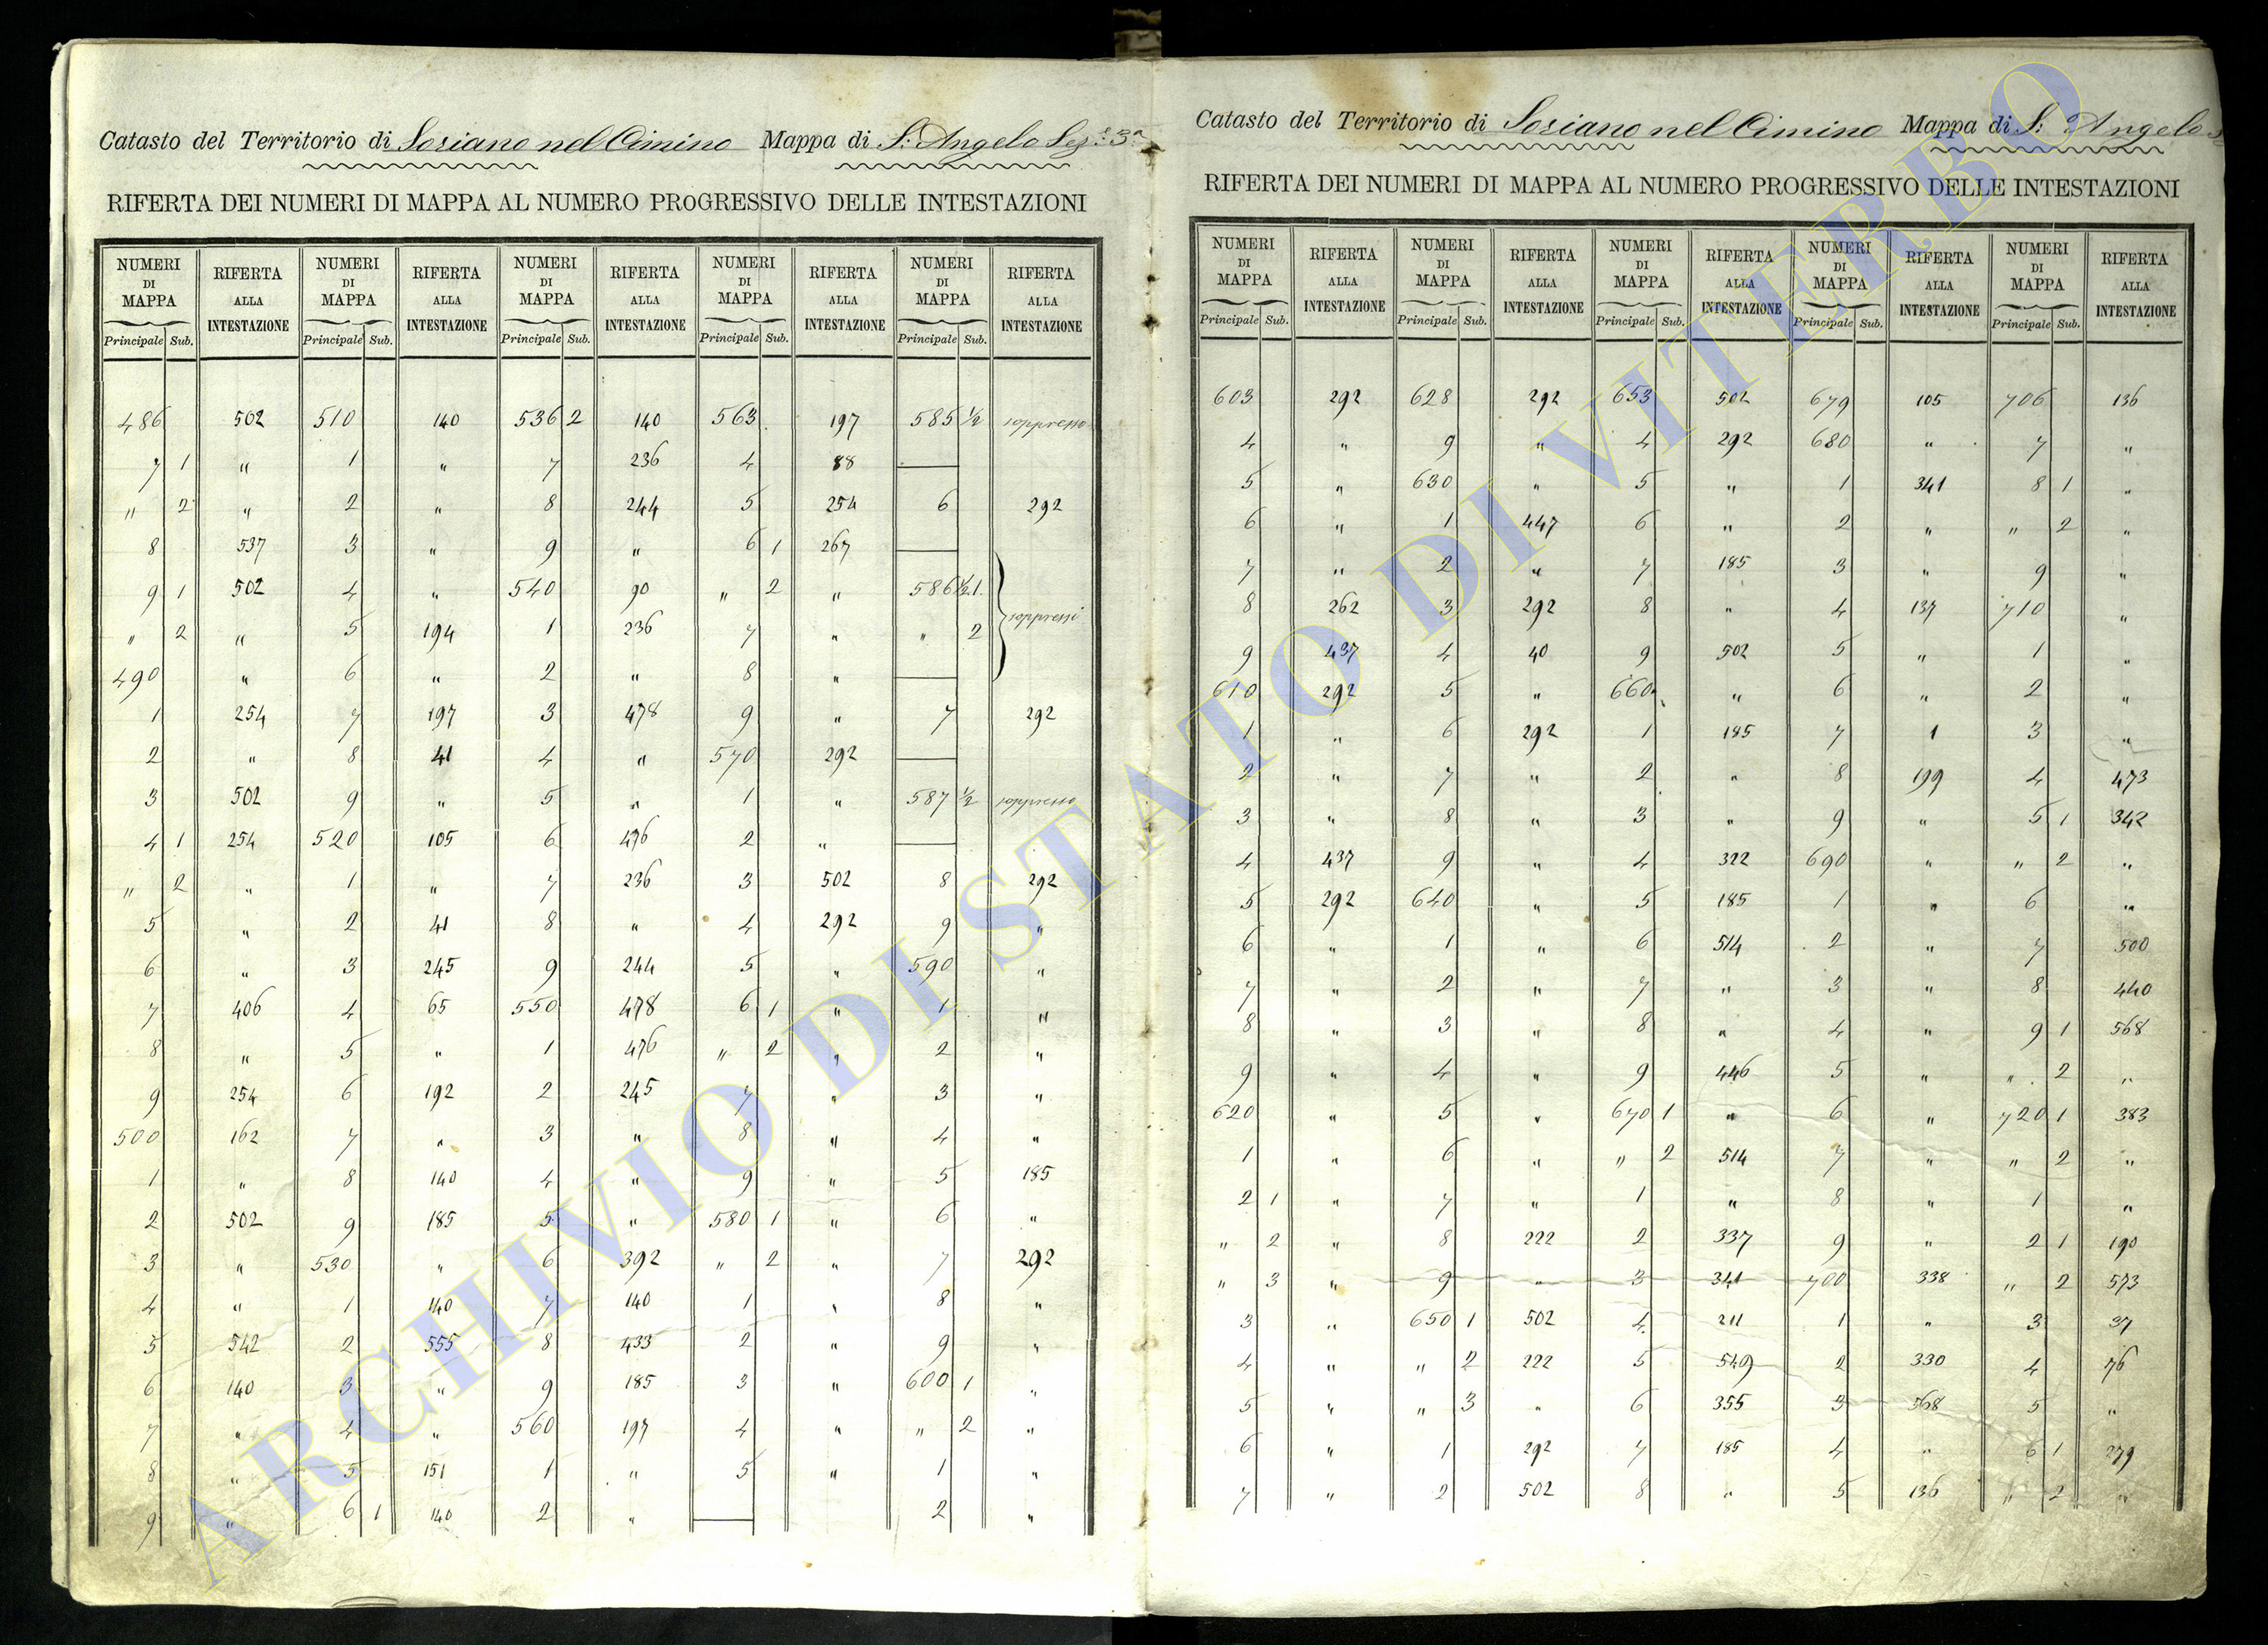 Catasto del Territorio di Soriano nel Cimino Mappa di S. Angelo Sez. 3a
RIFERTA DEI NUMERI DI MAPPA AL NUMERO PROGRESSIVO DELLE INTESTAZIONI
NUMERI DI MAPPA RIFERTA ALLA INTESTAZIONE NUMERI DI MAPPA RIFERTA ALLA INTESTAZIONE NUMERI DI MAPPA RIFERTA ALLA INTESTAZIONE NUMERI DI MAPPA RIFERTA ALLA INTESTAZIONE NUMERI DI MAPPA RIFERTA ALLA INTESTAZIONE
Principale Sub. Principale Sub. Principale Sub. Principale Sub. Principale Sub.
486 502 510 140 536 2 140 563 197 585 1/2 soppresso
7 1 " 1 " 7 236 4 88
" 2 " 2 " 8 244 5 254 6 292
8 537 3 " 9 " 6 1 267
9 1 502 4 " 540 90 " 2 " 586 1/2 1
" 2 " 5 194 1 236 7 " " 2 soppressi
490 " 6 " 2 " 8 "
1 254 7 197 3 478 9 " 7 292
2 " 8 41 4 " 570 292
3 502 9 " 5 " 1 " 587 1/2 soppresso
4 1 254 520 105 6 476 2 "
" 2 " 1 " 7 236 3 502 8 292
5 " 2 41 8 " 4 292 9 "
6 " 3 245 9 244 5 " 590 "
7 406 4 65 550 478 6 1 " 1 "
8 " 5 " 1 476 " 2 " 2 "
9 254 6 192 2 245 7 " 3 "
500 162 7 " 3 " 8 " 4 "
1 " 8 140 4 " 9 " 5 185
2 502 9 185 5 " 580 1 " 6 "
3 " 530 " 6 392 " 2 " 7 292
4 " 1 140 7 140 1 " 8 "
5 542 2 555 8 433 2 " 9 "
6 140 3 " 9 185 3 " 600 1 "
7 " 4 " 560 197 4 " " 2 "
8 " 5 151 1 " 5 " 1 "
9 " 6 1 140 2 " 2 "
Catasto del Territorio di Soriano nel Cimino Mappa di S. Angelo
RIFERTA DEI NUMERI DI MAPPA AL NUMERO PROGRESSIVO DELLE INTESTAZIONI
NUMERI DI MAPPA RIFERTA ALLA INTESTAZIONE NUMERI DI MAPPA RIFERTA ALLA INTESTAZIONE NUMERI DI MAPPA RIFERTA ALLA INTESTAZIONE NUMERI DI MAPPA RIFERTA ALLA INTESTAZIONE NUMERI DI MAPPA RIFERTA ALLA INTESTAZIONE
Principale Sub. Principale Sub. Principale Sub. Principale Sub. Principale Sub.
603 292 628 292 653 502 679 105 706 136
4 " 9 " 4 292 680 " 7 "
5 " 630 " 5 " 1 341 8 1 "
6 " 1 447 6 " 2 " " 2 "
7 " 2 " 7 185 3 " 9 "
8 262 3 292 8 " 4 137 710 "
9 437 4 40 9 502 5 " 1 "
610 292 5 " 660 " 6 " 2 "
1 " 6 292 1 185 7 1 3 "
2 " 7 " 2 " 8 199 4 473
3 " 8 " 3 " 9 " 5 1 342
4 437 9 " 4 322 690 " " 2 "
5 292 640 " 5 185 1 " 6 "
6 " 1 " 6 514 2 " 7 500
7 " 2 " 7 " 3 " 8 440
8 " 3 " 8 " 4 " 9 1 568
9 " 4 " 9 446 5 " " 2 "
620 " 5 " 670 1 " 6 " 720 1 383
1 " 6 " " 2 514 7 " " 2 "
2 1 " 7 " 1 " 8 " 1 "
" 2 " 8 222 2 337 9 " 2 1 190
" 3 " 9 " 3 341 700 338 " 2 573
3 " 650 1 502 4 211 1 " 3 37
4 " " 2 222 5 549 2 330 4 76
5 " " 3 " 6 355 3 568 5 "
6 " 1 292 7 185 4 " 6 1 279
7 " 2 502 8 " 5 136 " 2 "
ARCHIVIO DI STATO DI VITERBO